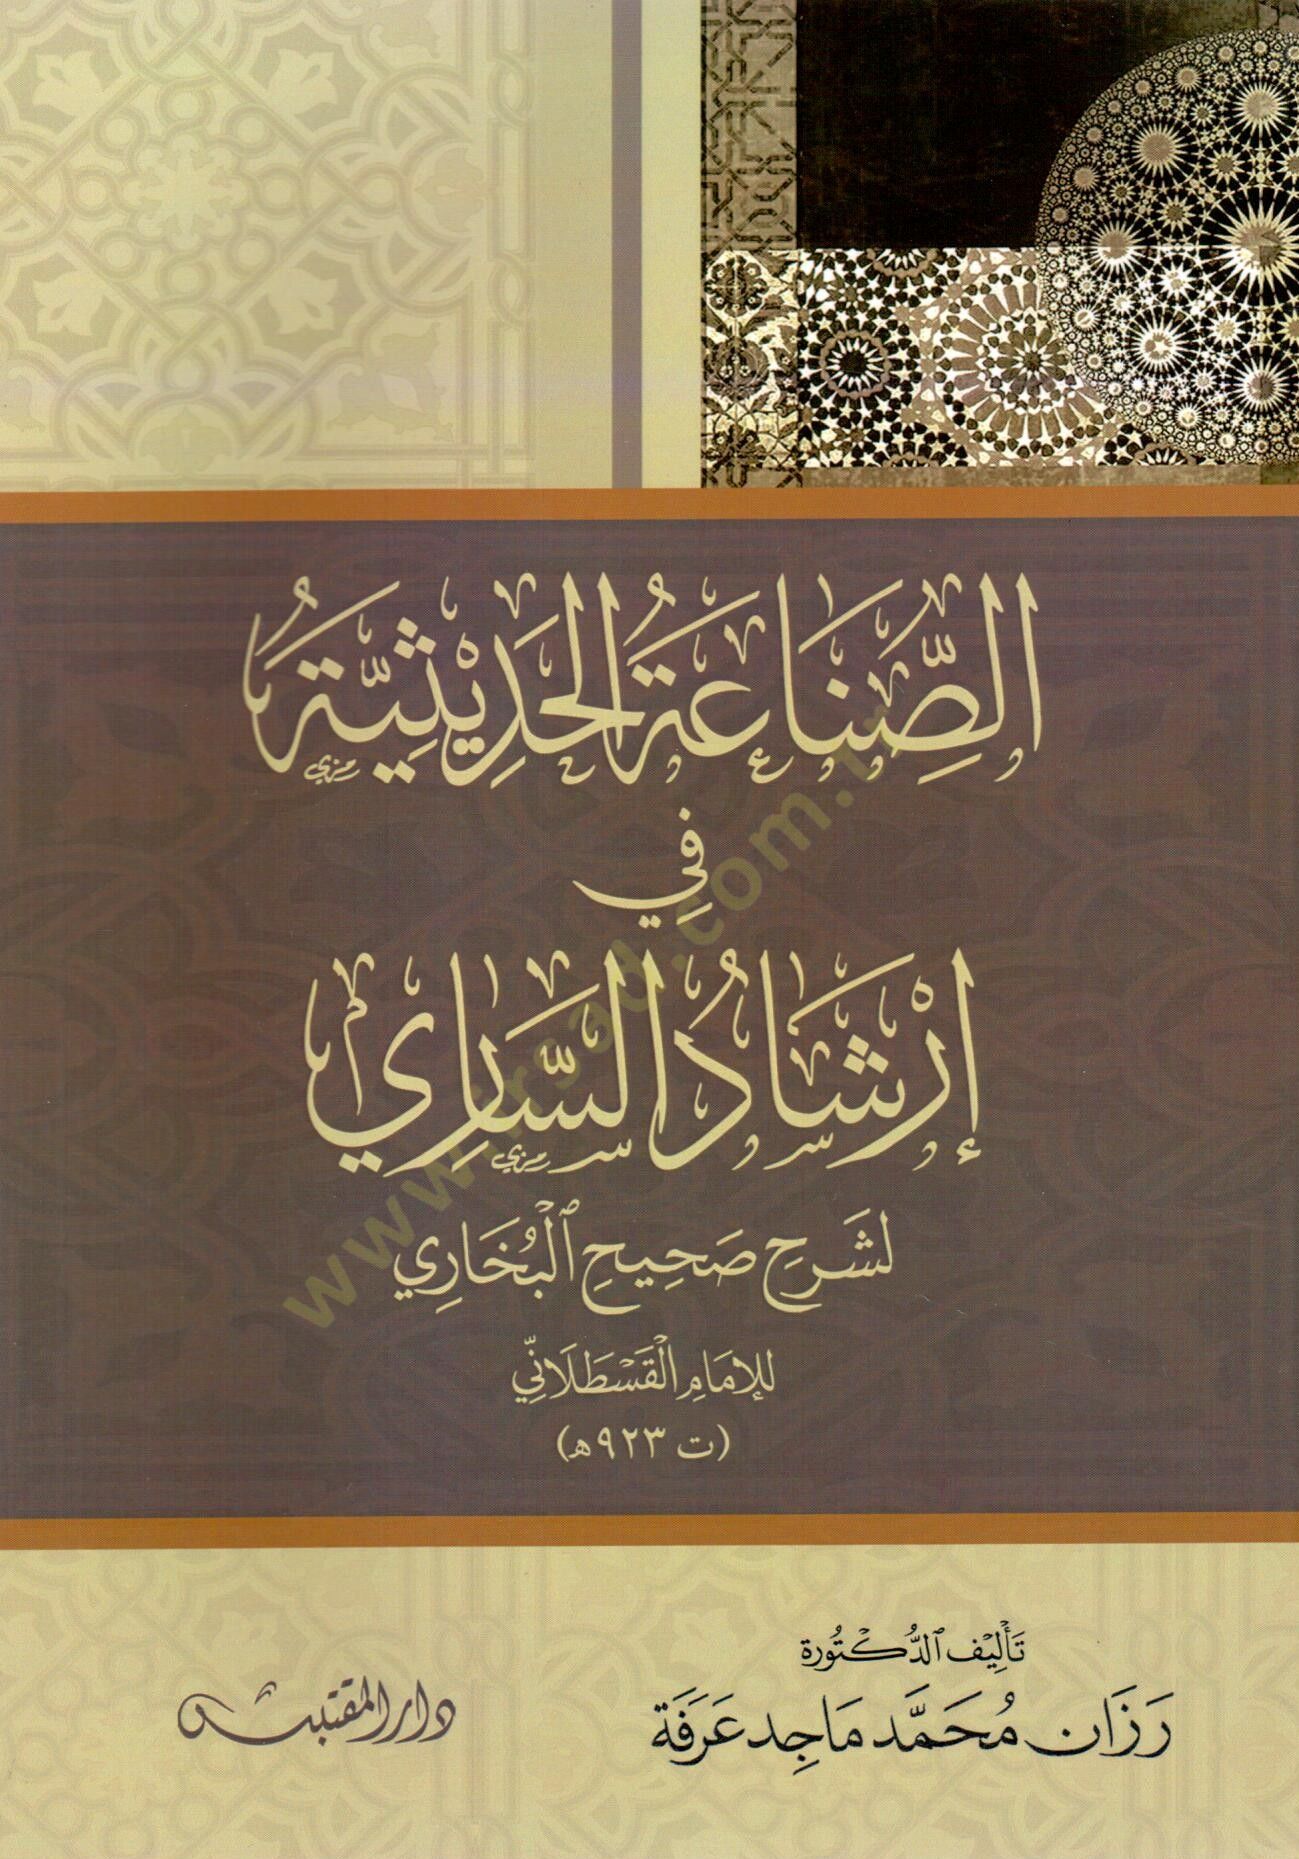 الصِّنَاعَةُ الحَدِيثِيَّةُ
فِي
إِرْشَادُ السَّارِي
لشَرْحِ صَحِيحِ الْبُخَارِي
للإِمَامِ القَسْطَلَانِّي
(ت ٩٢٣هـ)
تَأْلِيْف الدُّكْتُورَة
رَزَان مُحَمَّد مَاجِد عَرَفَة
دار المقتبس
www.irsad.com.tr